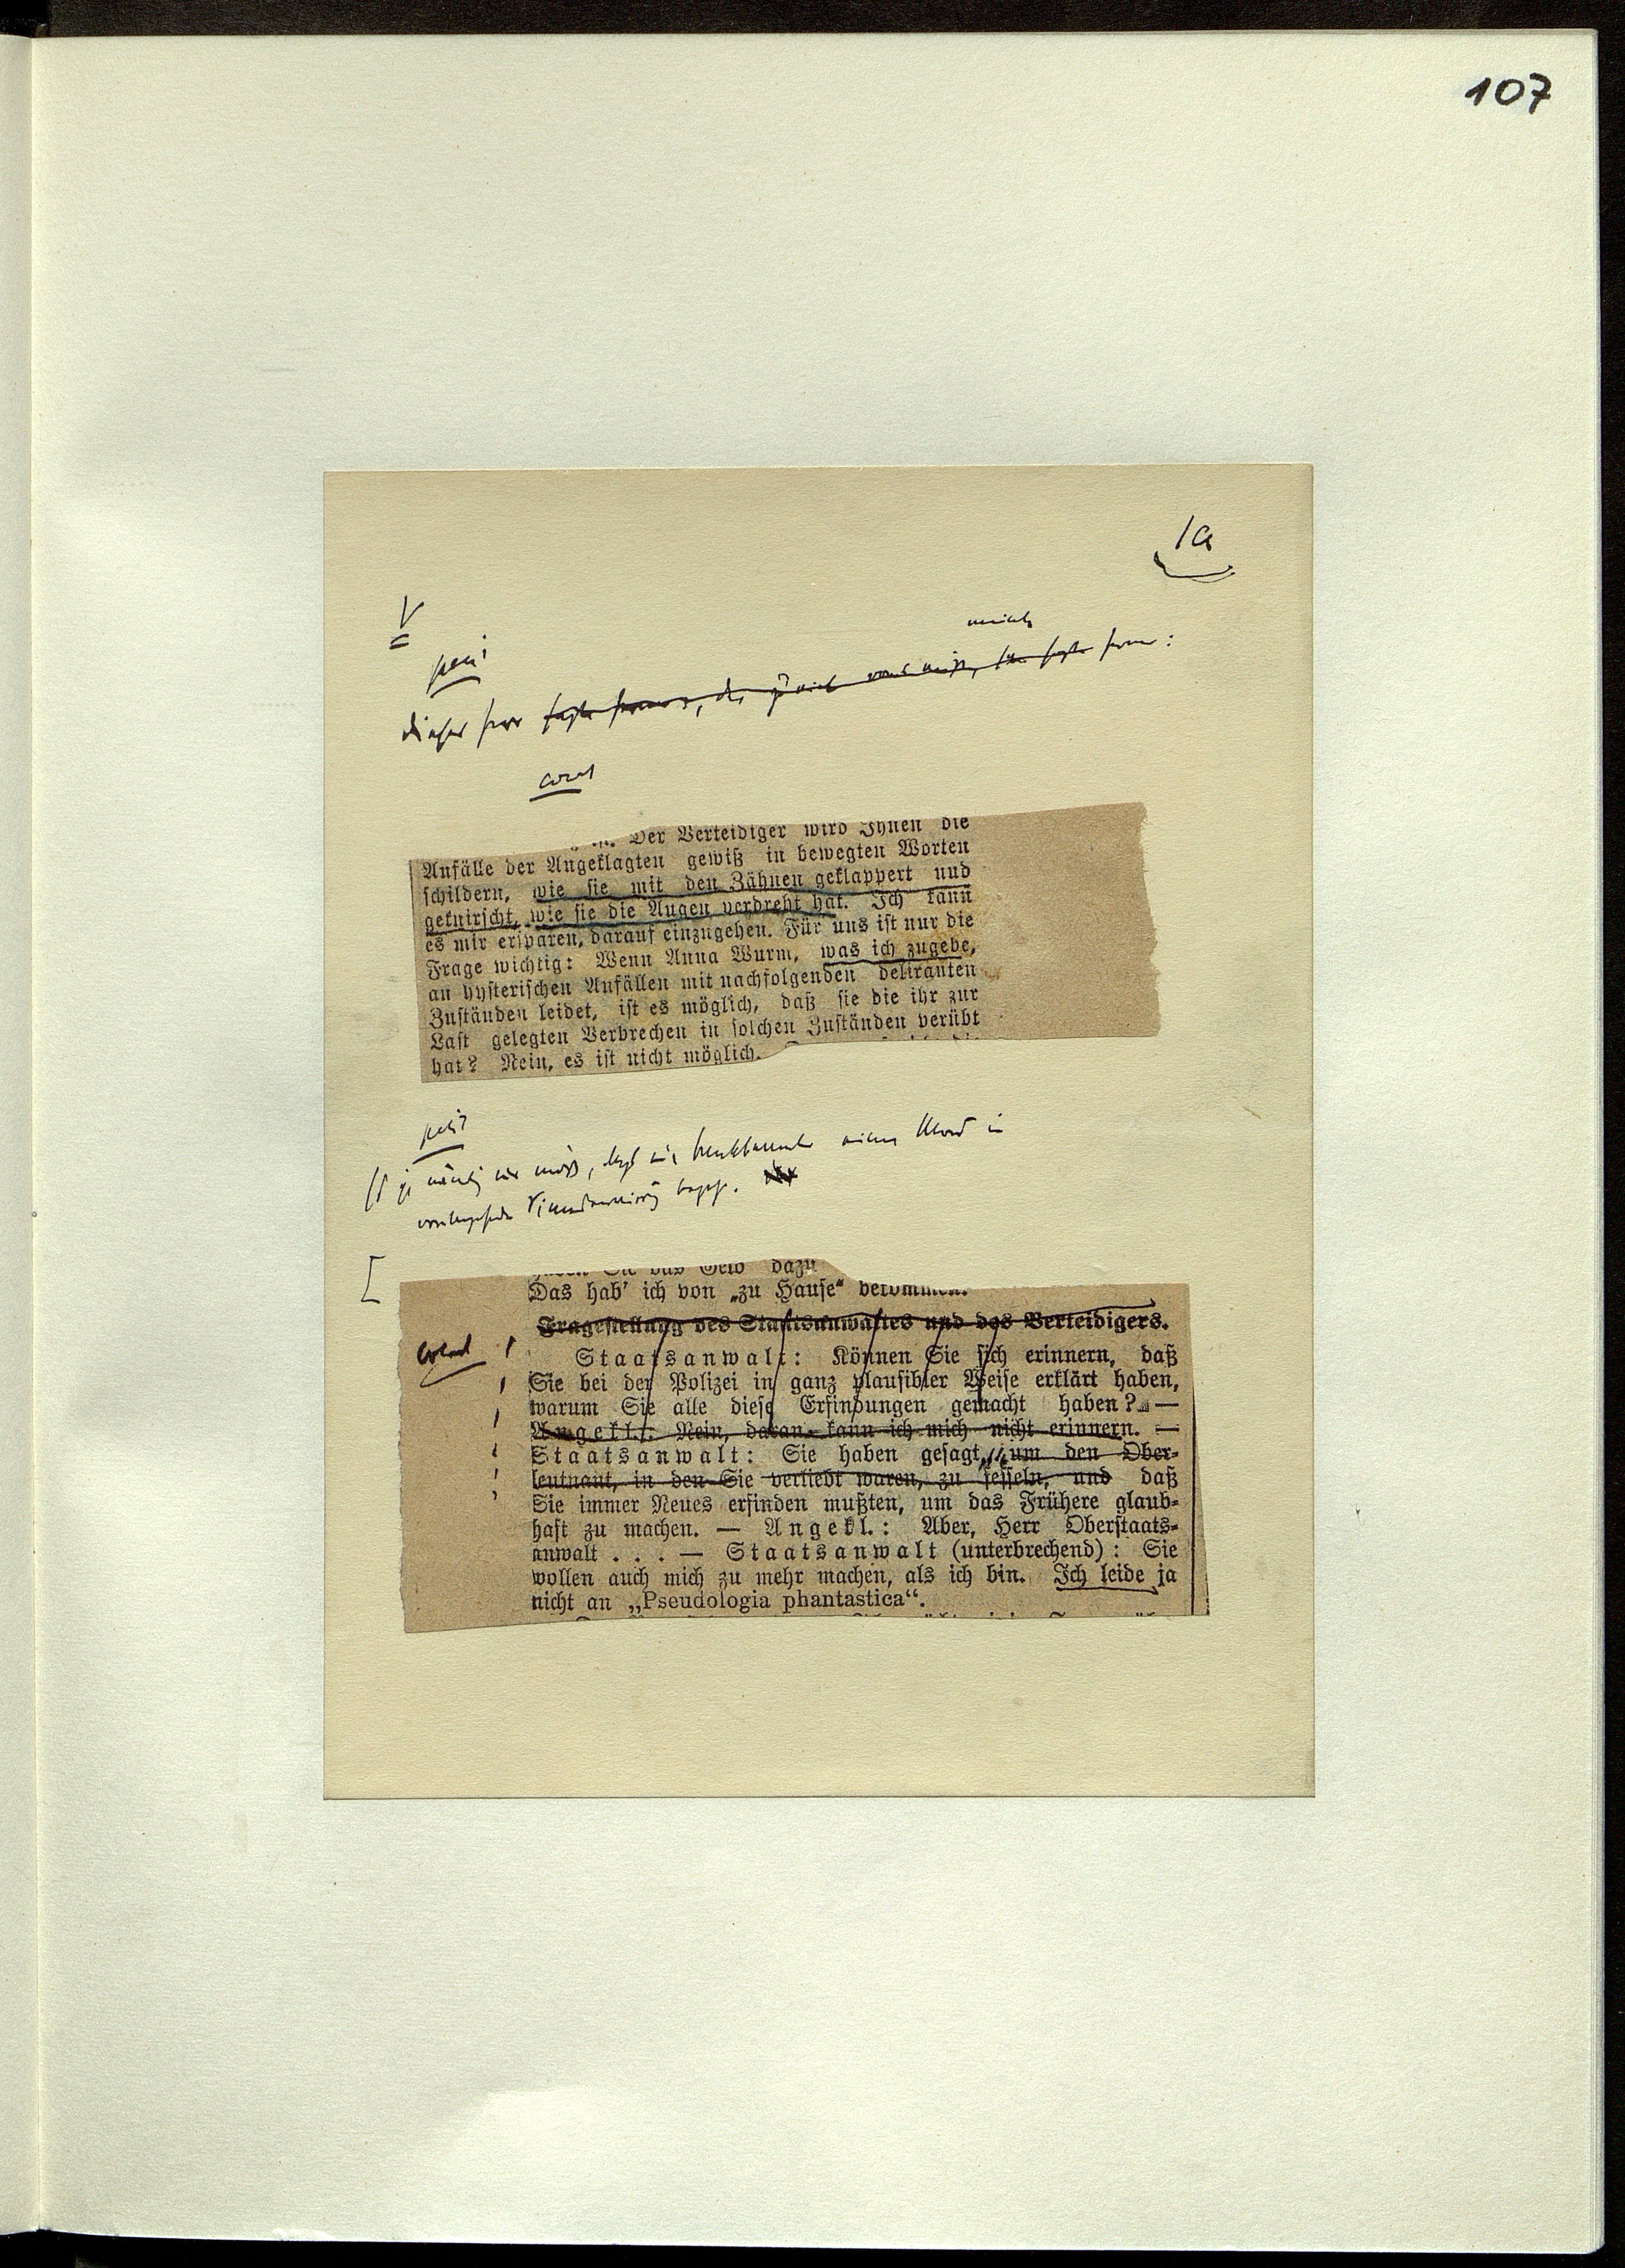 107
1a
V
petit
dieser Herr
: 
Der Verteidiger wird Ihnen die
Anfälle der Angeklagten gewiß in bewegten Worten
schildern, wie sie mit den Zähnen geklappert und
geknirscht, wie sie die Augen verdreht hat. Ich kann
es mir ersparen, darauf einzugehen. Für uns ist nur die
Frage wichtig: Wenn Anna Wurm, was ich zugebe,
an hysterischen Anfällen mit nachfolgenden deliranten
Zuständen leidet, ist es möglich, daß sie die ihr zur
Last gelegten Verbrechen in solchen Zuständen verübt
hat? Nein, es ist nicht möglich.
petit
einen Mord in
Sie das Geld dazu
Das hab' ich von „zu Hause" bekommen.
Fragestellung des Staatsanwaltes und des Verteidigers.
Staatsanwalt: Können Sie sich erinnern, daß
Sie bei der Polizei in ganz plausibler Weise erklärt haben,
warum Sie alle diese Erfindungen gemacht haben? —
Angekl.: Nein, daran kann ich mich nicht erinnern. —
Staatsanwalt: Sie haben gesagt, um den Ober-
leutnant, in den Sie verliebt waren, zu fesseln, und daß
Sie immer Neues erfinden mußten, um das Frühere glaub-
haft zu machen. — Angekl.: Aber, Herr Oberstaats-
anwalt . . . — Staatsanwalt (unterbrechend): Sie
wollen auch mich zu mehr machen, als ich bin. Ich leide ja
nicht an „Pseudologia phantastica“.